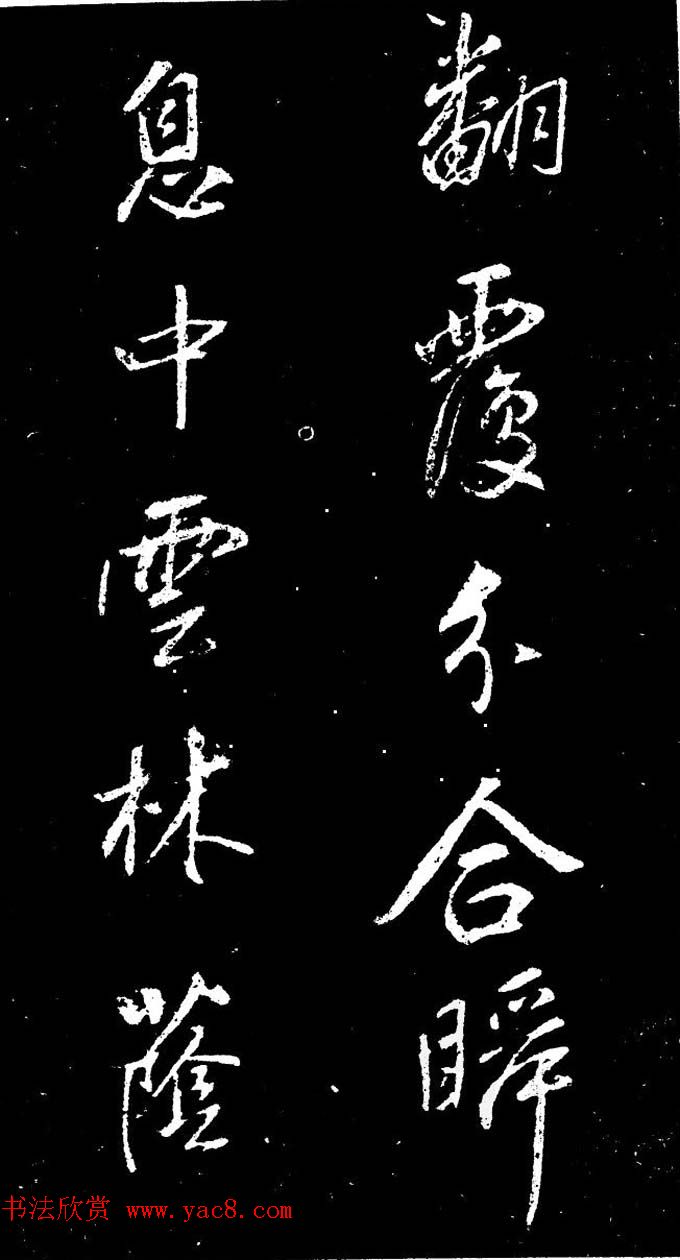 翻覆分合瞬
息中雲林蔭
书法欣赏 www.yac8.com